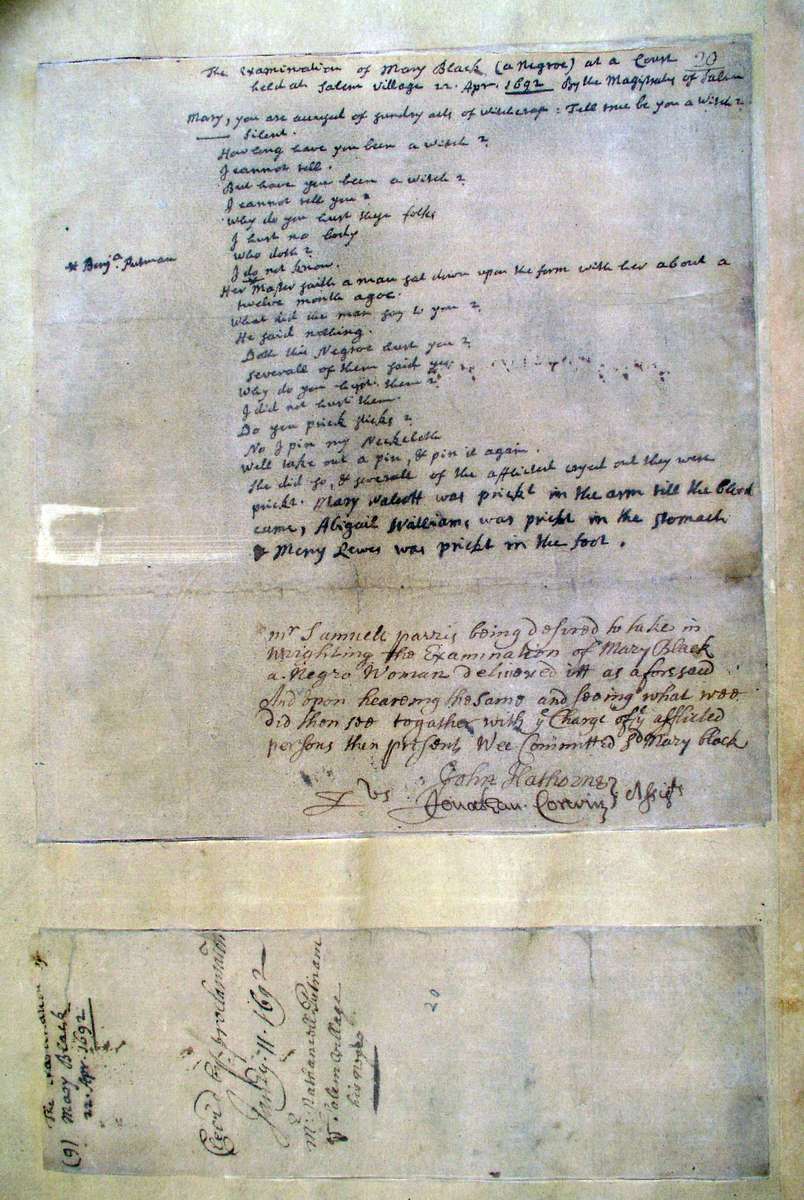 The Examination of Mary Black (a Negroe) at a Court
held at Salem Village 22. Apr. 1692 By the Magistrates of Salem
20
Mary, you are accused of sundry acts of witchcraft: Tell me be you a Witch?
—— Silent.
How long have you been a witch?
I cannot tell.
But have you been a witch?
I cannot tell you.
Why do you hurt these folks
I hurt no body
Who doth?
I do not know.
* Benja. Putnam
Her * Master saith a man sat down upon the form with her about a
twelve month agoe.
What did the man say to you?
He said nothing.
Doth this Negroe hurt you?
Severall of them said yes
Why do you hurt them?
I did not hurt them.
Do you prick sticks?
No I pin my Neckcloth
Well take out a pin, & pin it again.
She did so, & severall of the afflicted cryed out they were
prickt. Mary Walcott was prickt in the arm till the blood
came, Abigail Williams was prickt in the stomach
& Mercy Lewes was prickt in the foot.
mr Samuell parris being desired to take in
wrighting the Examination of Mary Black
a Negro Woman delivered itt as aforesaid
And upon heareing the same and seeing what wee
did then see togather with ye Charge of ye afflicted
persons then present, Wee Committed sd Mary black
John Hathorne
Jonathan. Corwin
Assists
us
The Examination of
(9) Mary Black
22. Apr. 1692
Cler'd by proclamation
Jan'ry. 11. 1692
Mr. Nathaniell Putnam
of Salem Village
his Negro
20